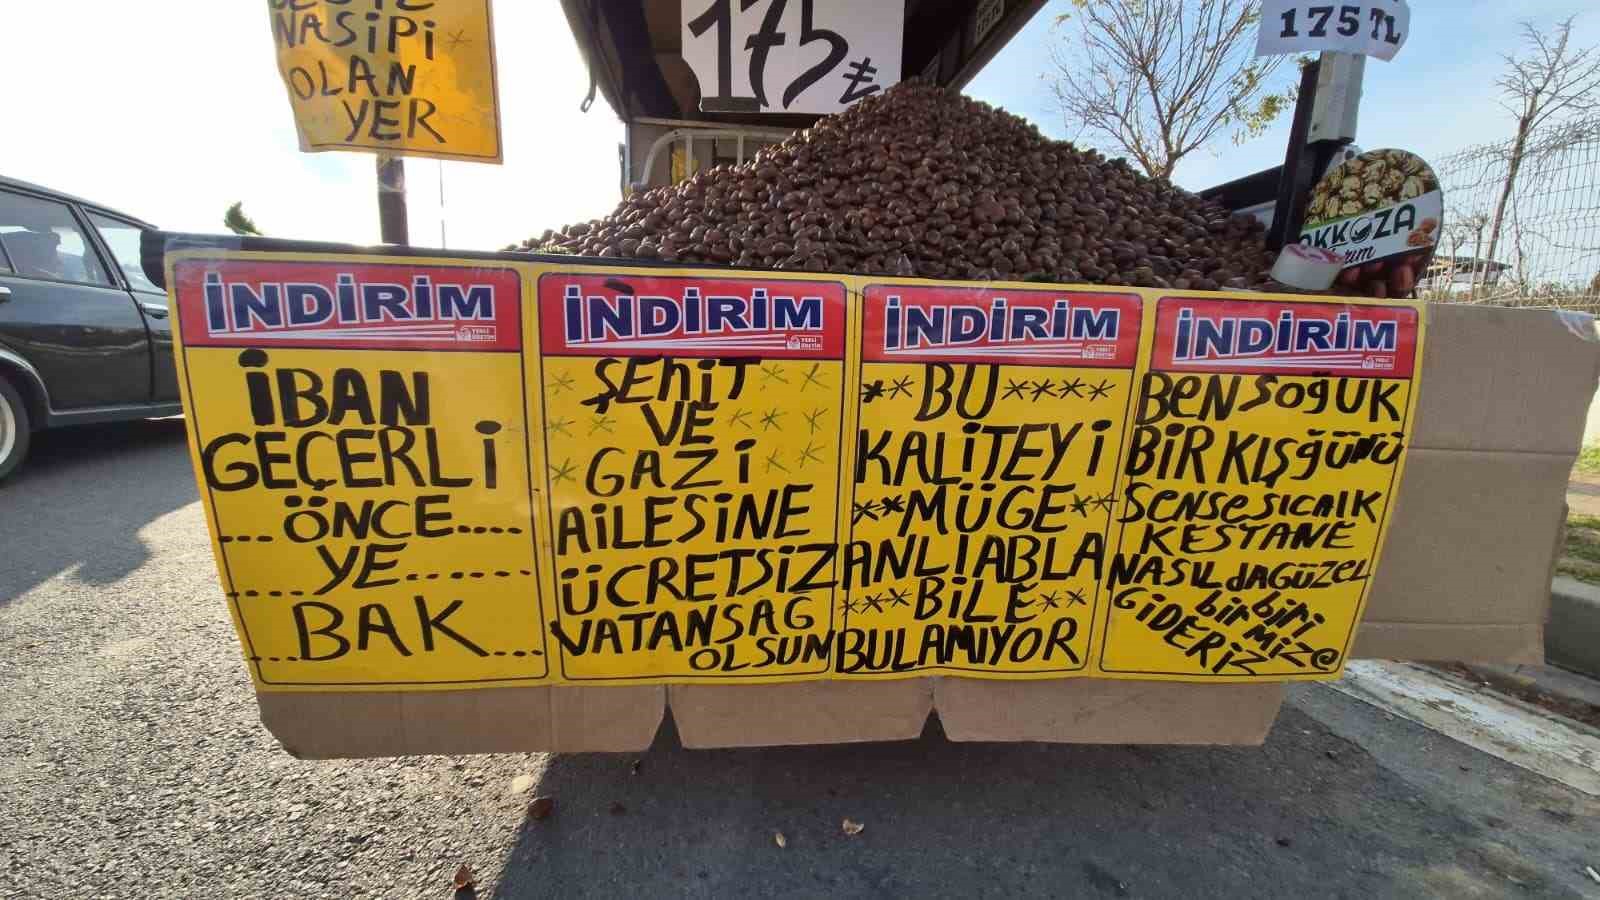 NASİPİ
OLAN
YER
175₺
175 TL
KKOZA
İNDİRİM
YERLİ
ÜRETİM
İBAN
GEÇERLİ
...ÖNCE....
....YE......
....BAK....
İNDİRİM
YERLİ
ÜRETİM
ŞEHİT
VE
GAZİ
AİLESİNE
ÜCRETSİZ
VATANSAG
OLSUN
İNDİRİM
YERLİ
ÜRETİM
**BU****
KALİTEYİ
**MÜGE**
ANLIABLA
***BİLE**
BULAMIYOR
İNDİRİM
YERLİ
ÜRETİM
BEN SOĞUK
BİR KIŞĞÜNÜ
SENSE SICAIK
KESTANE
NASIL dAGÜZEL
birbiri
mize
GİDERİZ